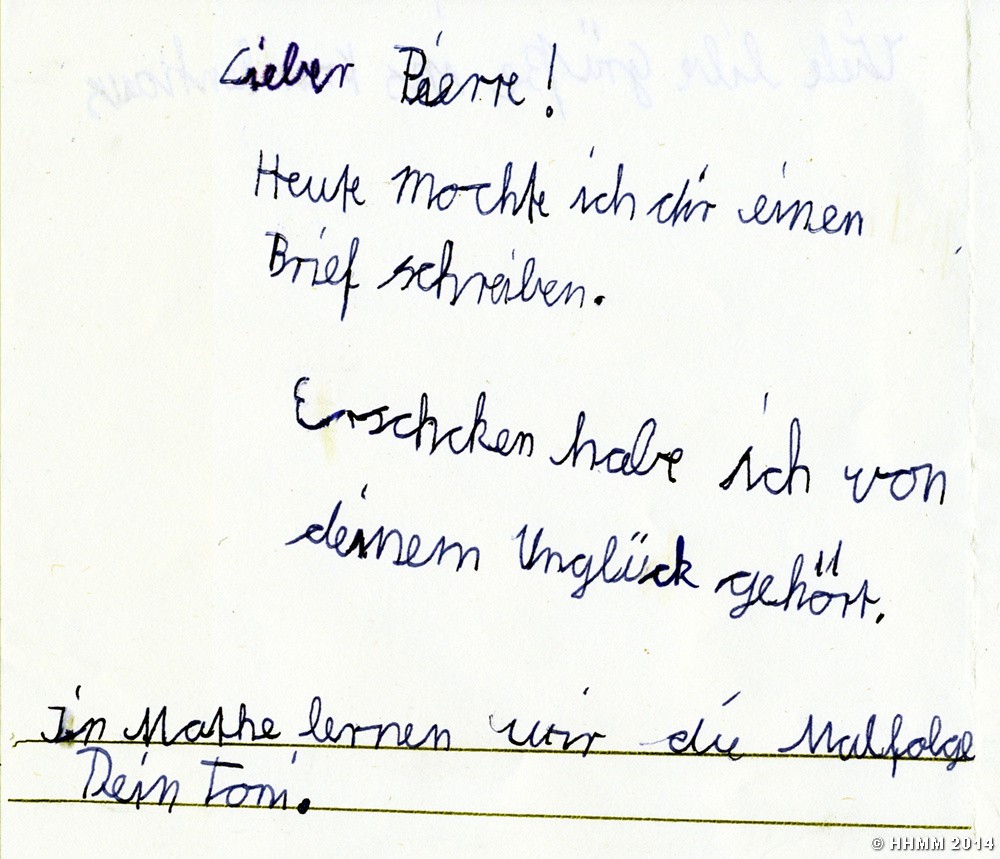 Lieber Pierre!
Heute mochte ich dir einen
Brief schreiben.
Erschcken habe ich von
deinem Unglück gehört.
In Mathe lernen wir die Malfolge
Dein Toni.
© HHMM 2014